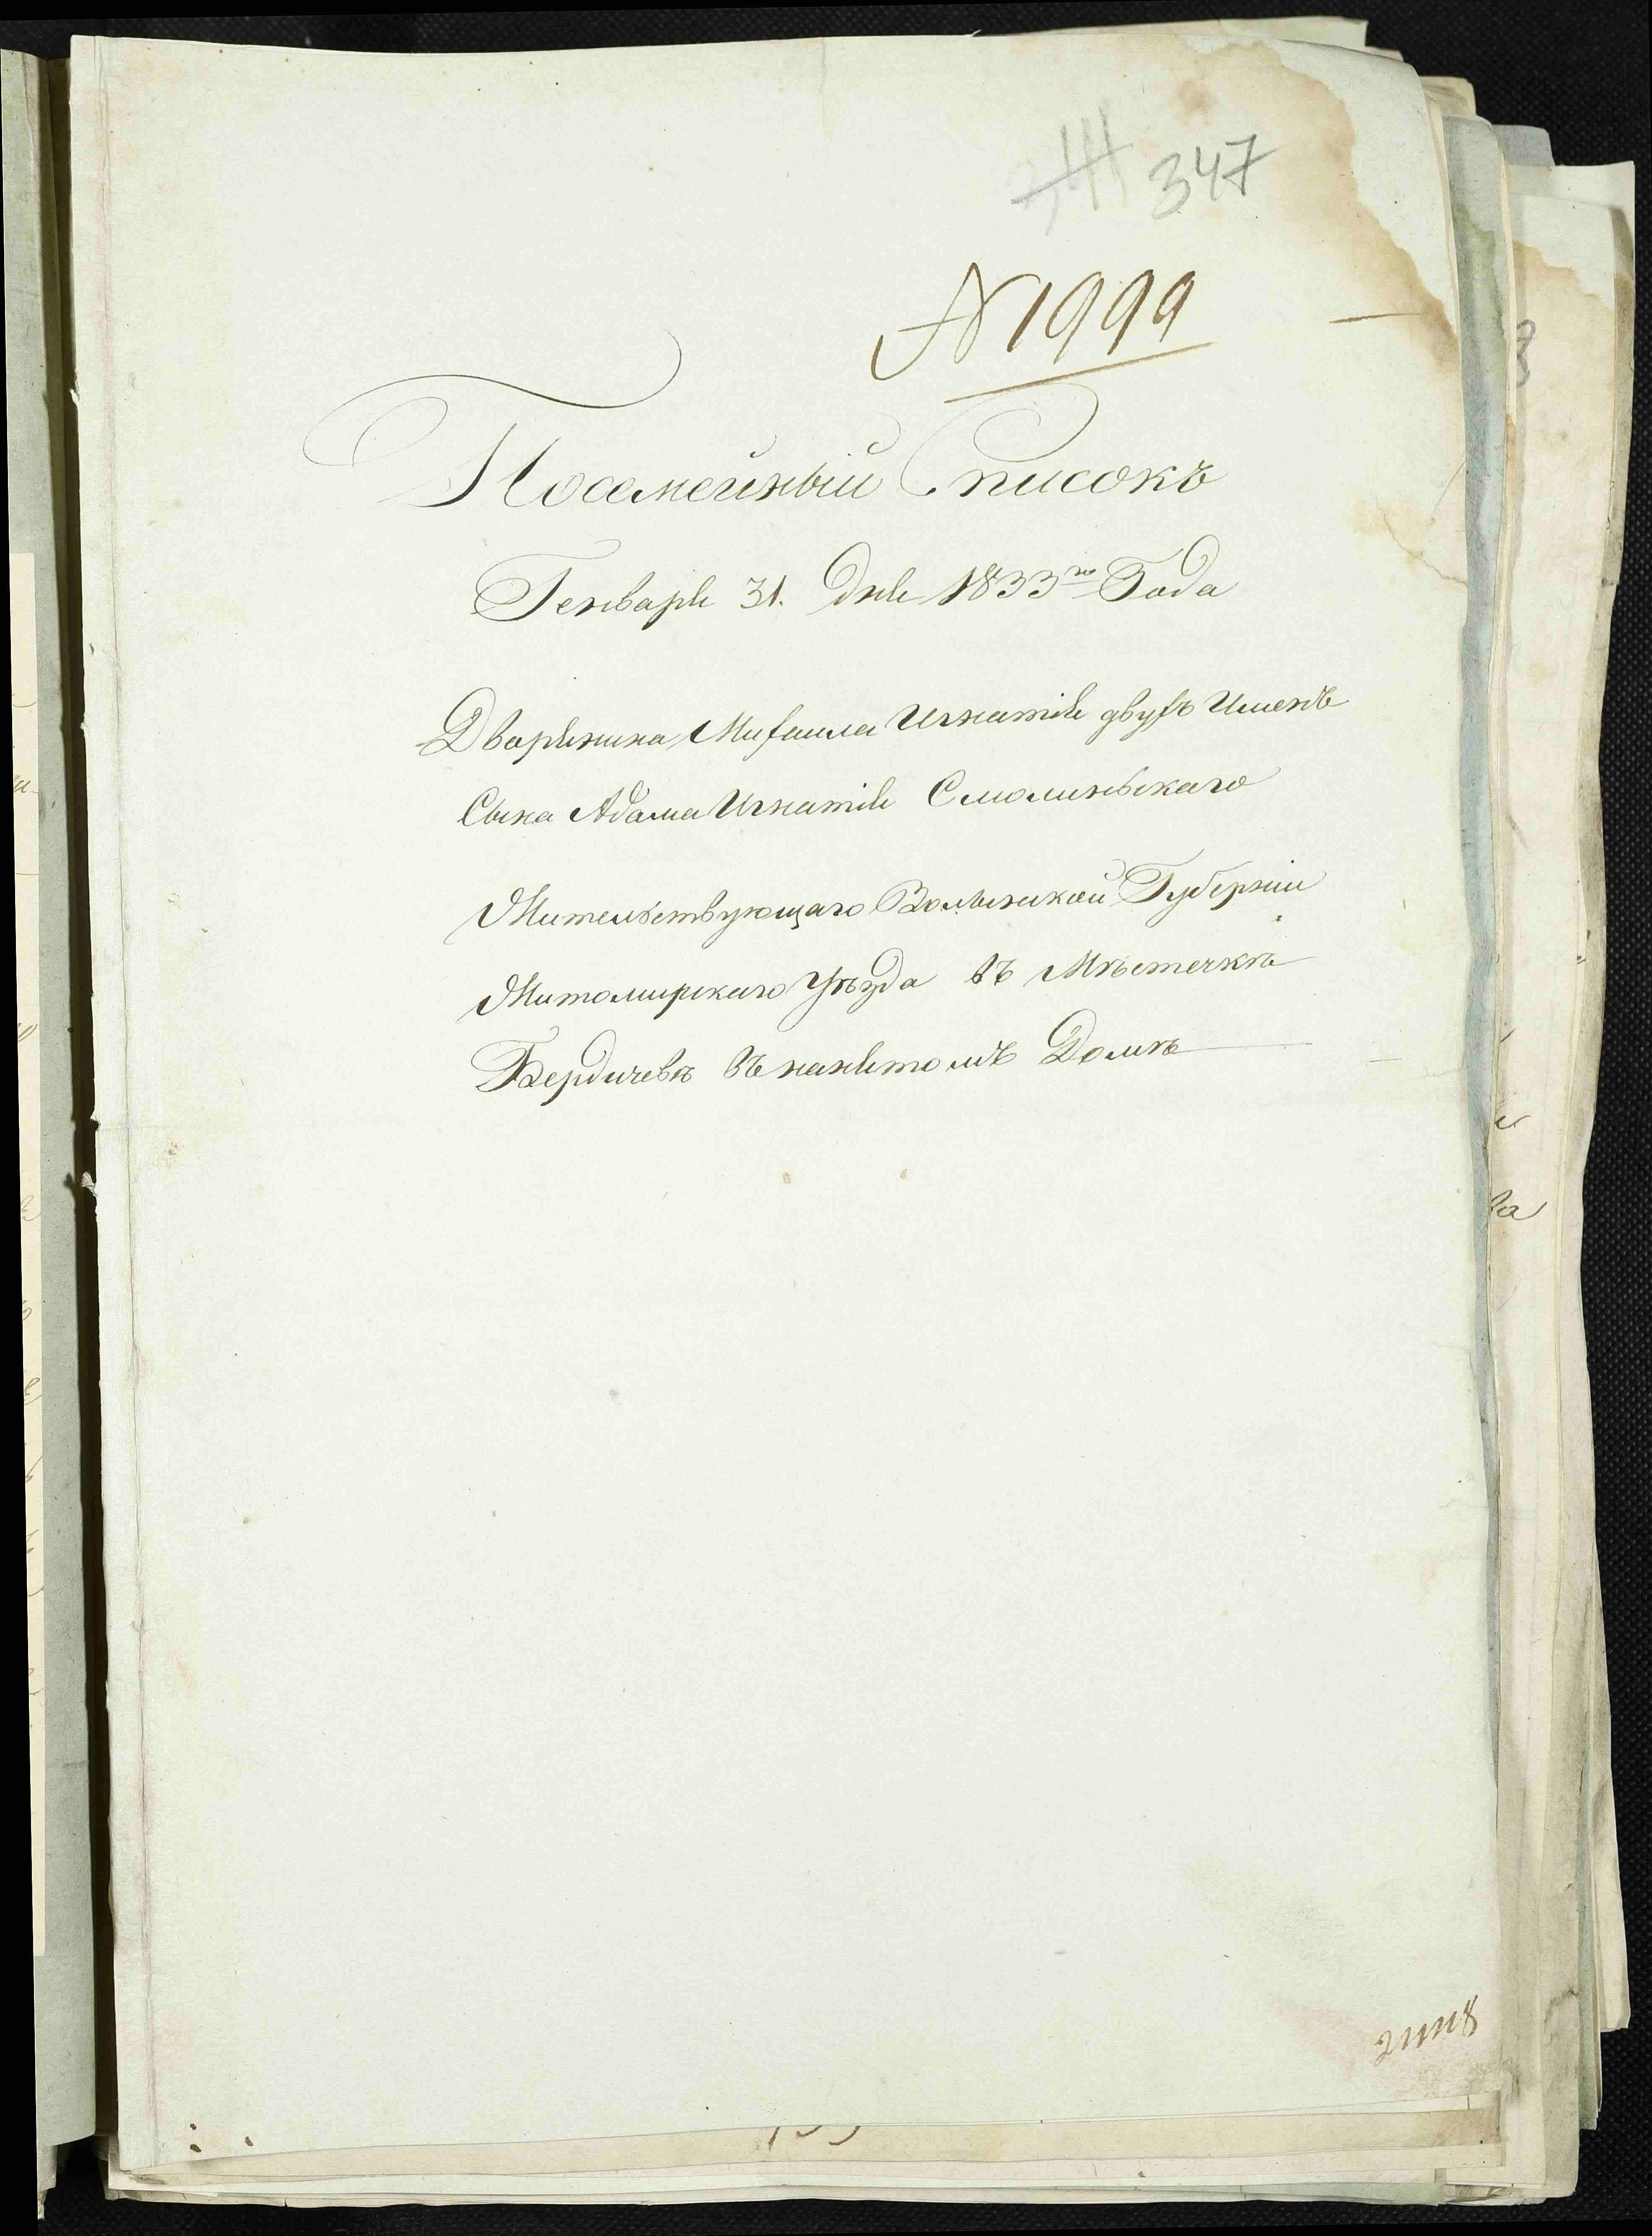 347
N 1999
Посемейный Списокъ
Генваря 31. дня 1833го Года
Дворянина Михаила Игнатія двухъ Именъ
Сына Адама Игнатія Смолинскаго
Жительствующаго Волынской Губерніи
Житомирскаго Уѣзда въ Мѣстечкѣ
Бердичевѣ въ нанятомъ Домѣ